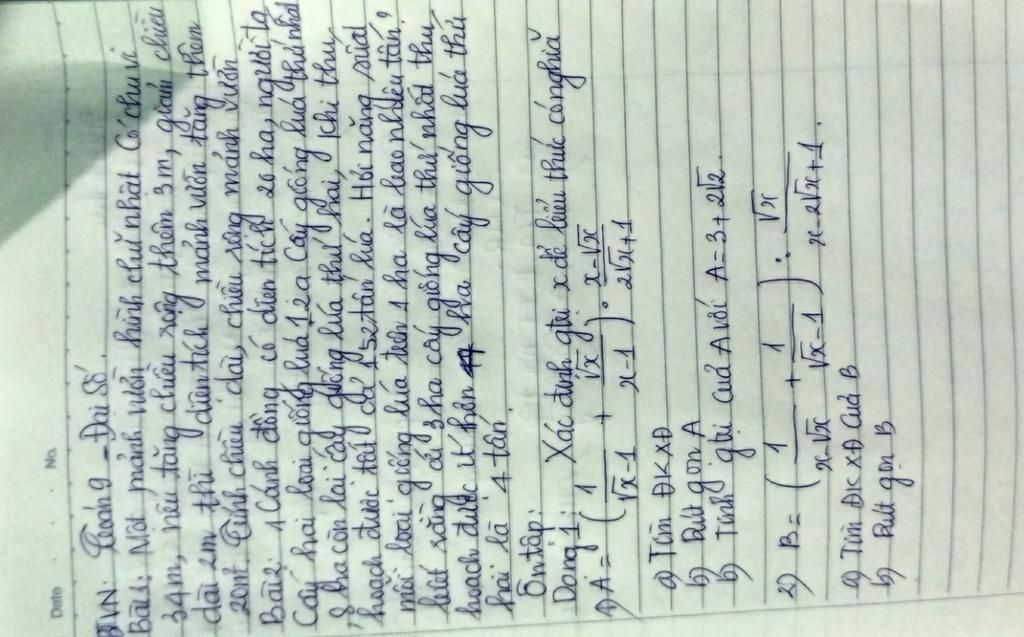 Date No.
BTVN: Toán 9 - Đại Số.
Bài 1: Một mảnh vườn hình chữ nhật có chu vi
34m, nếu tăng chiều rộng thêm 3m, giảm chiều
dài 2m thì diện tích mảnh vườn tăng thêm
20m². Tính chiều dài, chiều rộng mảnh vườn
Bài 2: 1 Cánh đồng có diện tích 20 ha, người ta
Cấy hai loại giống lúa, 12a Cấy giống lúa thứ nhất
8 ha còn lại cấy giống lúa thứ hai, khi thu
hoạch được tất cả 152 tấn lúa. Hỏi năng suất
mỗi loại giống lúa trên 1 ha là bao nhiêu tấn?
biết rằng cứ 3 ha cấy giống lúa thứ nhất thu
hoạch được ít hơn 4 ha cấy giống lúa thứ
hai là 4 tấn
Ôn tập:
Dạng 1: Xác định gtrị x để biểu thức có nghĩa
1) A = ( 1/(√x-1) + √x/(x-1) ) : (x-√x)/(2√x+1)
a) Tìm ĐKXĐ
b) Rút gọn A
b) Tính gtrị của A với A = 3+2√2.
2) B = ( 1/(x-√x) + 1/(√x-1) ) : √x/(x-2√x+1).
a) Tìm ĐKXĐ của B
b) Rút gọn B